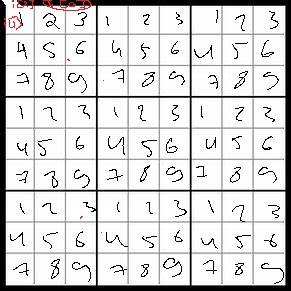 1 2 3 1 2 3 1 2 3
4 5 6 4 5 6 4 5 6
7 8 9 7 8 9 7 8 9
1 2 3 1 2 3 1 2 3
4 5 6 4 5 6 4 5 6
7 8 9 7 8 9 7 8 9
1 2 3 1 2 3 1 2 3
4 5 6 4 5 6 4 5 6
7 8 9 7 8 9 7 8 9